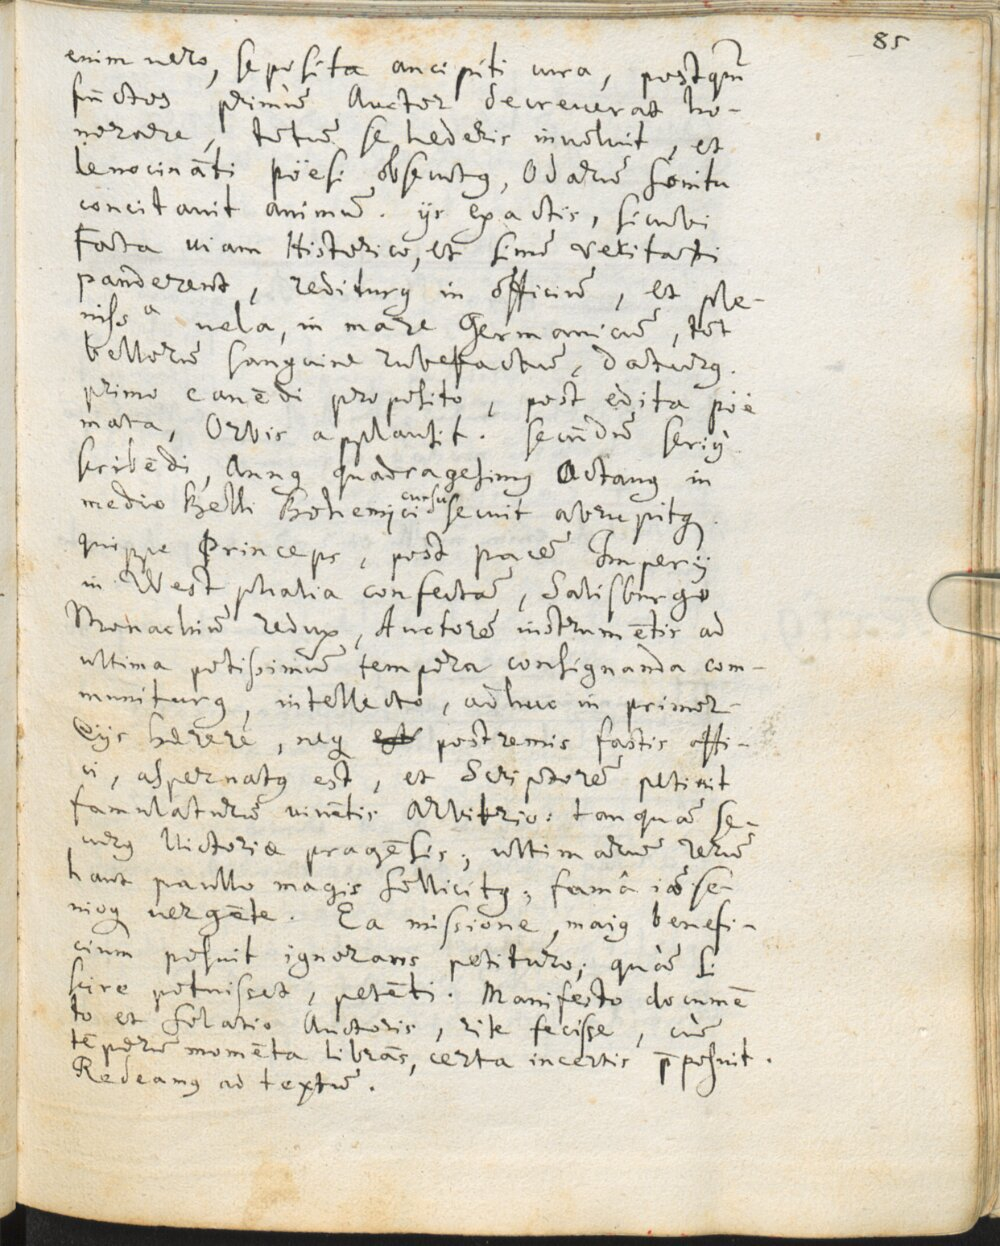 85
enim uero, seposita ancipiti cura, postqm̄
functos primū Auctor decreuerat ho-
norare, totū se hederis inuoluit, et
lenocināti pöesi obsecutꝰ, Odarū sonitu
concitauit animū. ijs exactis, sicubi
Fata uiam Historico, et simū veritati
panderent, rediturꝰ in officiū, et ple-
niss a uela, in mare Germanicū, tot
bellorū sanguine rubefactū, daturꝰ.
primo canēdi proposito, post edita pöe
mata, Orbis applausit. secundū seriꝰ
scribēdi, Annꝰ quadragesimꝰ Octauꝰ in
medio Belli Bohemici cursu secuit abrupitꝙ
quippe Princeps, post pacē Imperij
in Westphalia confectā, Salisburgo
Monachiū redux, Auctorē instrumētis ad
ultima potissimū tempora consignanda com-
muniturꝰ, intellecto, adhuc in primor-
dijs hærere, neqꝫ postremis fastis affi-
ci, aspernatꝰ est, et Scriptorē petiuit
famulaturū uiuētis Arbitrio: tanquā se-
curꝰ Uictoriæ pragēsis; ultimarū rerū
haut paullo magis sollicitꝰ; famâ iā se-
niog uergēte. Ea missione, maiꝰ benefi-
cium posuit ignorans petituro; quā si
scire potuisset, petēti. Manifesto documē
to et solatio Auctoris, rite fecisse, cū
tēporū momēta librās, certa incertis p̄posuit.
Redeamꝰ ad textū.